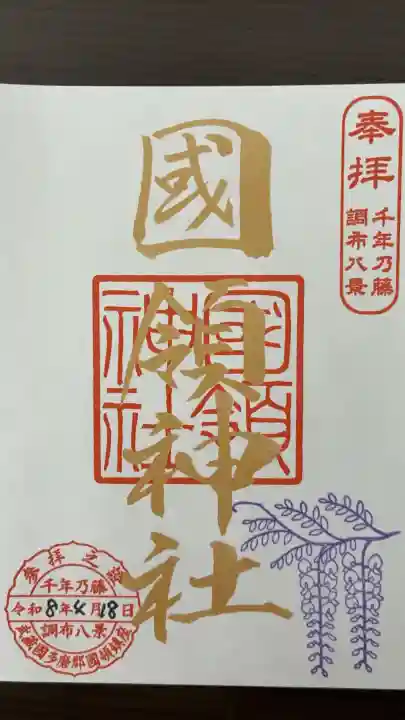 奉拝
千年乃藤
調布八景
國領神社
國領神社
奉拝之證
千年乃藤
令和8年4月18日
調布八景
武蔵國多磨郡國領鎮座